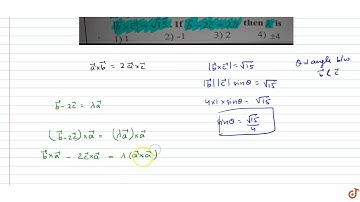 |b⃗×c⃗| = √15. If b⃗ - 2c⃗ = λa⃗ then λ is
1) 1 2) -1 3) 2 4) ±4
a⃗×b⃗ = 2a⃗×c⃗
|b⃗×c⃗| = √15
θ → angle b/w
b⃗ & c⃗
|b⃗| |c⃗| sinθ = √15
4×1×sinθ = √15
b⃗-2c⃗ = λa⃗
sinθ = √15/4
(b⃗-2c⃗)×a⃗ = (λa⃗)×a⃗
b⃗×a⃗ - 2c⃗×a⃗ = λ(a⃗×a⃗)